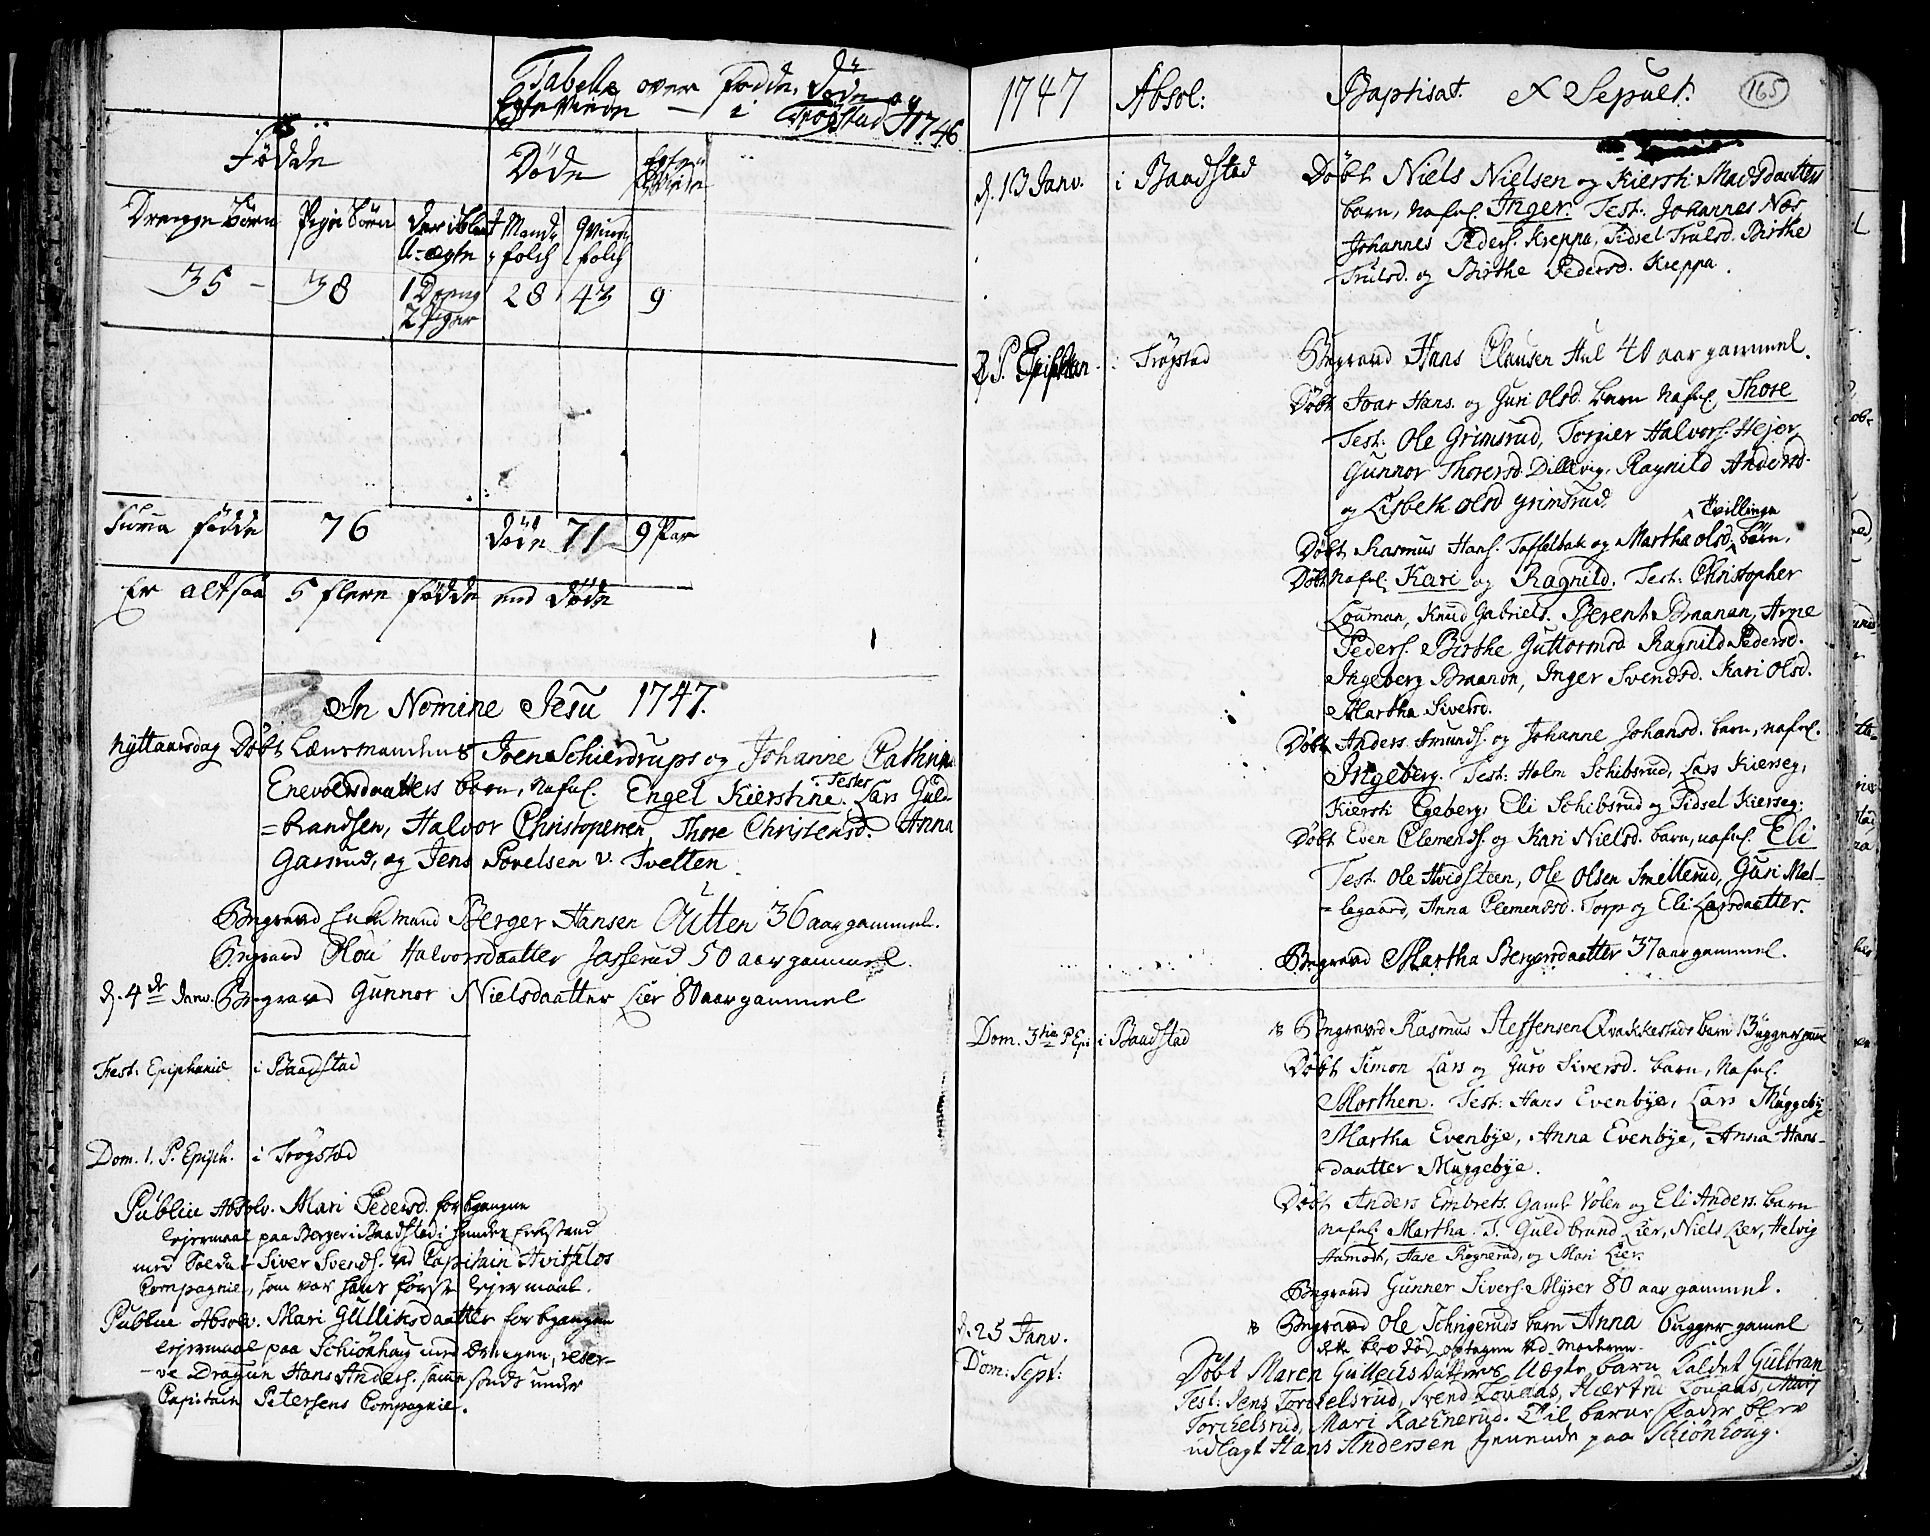 Tabelle over fødde, Døde og
Egteviede — i Trøgstad 1746
Fødde
Døde
Egte Viede
Drenge Børn
Pige Børn
Der iblant
U-ægte
Mand-
folch
Qvind-
folch
35 –
38
1 Dreng
2 Piger
28
43
9
Summa fødde
76
Døde 71
9 Par
Er altsaa 5 flere fødde end døde
In Nomine Jesu 1747.
Nyttaarsdag Døbt Lænsmandens Joen Schierdrups og Johanne Cathrine
Enevoldsdaatters barn, nafnl. Engel Kierstine. Testes Lars Guld-
=brandsen, Halvor Christopersen, Thore Christensd. Anna
Gasrud, og Jens Povelsen v. Tvetten.
Begraved Enckmand Berger Hansen Outten 36 aar gammel.
Begraved Olou Halvorsdaatter Jasserud 50 aar gammel.
d. 4de Janv. Begraved Gunnor Nielsdaatter Lier 80 aar gammel
Fest: Epiphanie i Baadstad
Dom. 1. P. Epiph. i Trøgstad
Publice Absolv. Mari Pedersd. for begangen
lejermaal paa Berger i Baadstad i hendes Enkestand
med Soldat Siver Svends. ved Capitain Hvitfelds
Compagnie, som var hans første lejermaal.
Publice Absolv. Mari Gulliksdaatter for begangen
lejermaal paa Schiønhaug med Drengen, reser-
ve Dragun Hans Anders. sammesteds under
Capitain Petersens Compagnie.
1747 Absol: Baptisat. & Sepult. 165
d. 13 Janv. i Baadstad Døbt Niels Nielsen og Kiersti Madsdaatters
barn, nafnl. Inger. Test: Johannes Næs
Johannes Peders. Kreppa, Sidsel Trulsd. Birthe
Trulsd. og Birthe Pedersd. Kreppa.
2 P. Epiphan. i Trøgstad Begraved Hans Clausen Hul 40 aar gammel.
Døbt Ivar Hans. og Guri Olsd. barn nafnl. Thore
Test: Ole Grimsrud, Torgier Halvors. Hejer,
Gunnor Thoresd. Dillevig, Ragnild Andersd.
og Lisbeth Olsd Grimsrud.
Døbt Rasmus Hans. Toffelbak og Martha Olsd. Tvillinge børn,
Døbt nafnl. Kari og Ragnild. Test: Christopher
Louman, Knud Gabriels. Berent Braanan, Arne
Peders. Birthe Guttormsd Ragnild Pedersd.
Ingeberg Braanan, Inger Svendsd. Kari Olsd.
Martha Siversd.
Døbt Anders Amunds. og Johanne Johansd. barn, nafnl.
Ingeberg. Test: Holm Schibsrud, Lars Kierseg,
Kiersti Egeberg, Eli Schibsrud og Sidsel Kierseg:
Døbt Even Clemends. og Kari Nielsd. barn, nafnl. Eli
Test: Ole Hvidsteen, Ole Olsen Smellerud, Guri Mel-
=legaard, Anna Clemendsd. Torp og Eli Larsdaatter.
Begraved Martha Bergersdaatter 37 aar gammel.
Dom. 3tia P Epi i Baadstad Begraved Rasmus Steffensen Qvakkestads barn 13 uger gamel
Døbt Simon Lars og Guro Siversd. barn, nafnl.
Morthen. Test: Hans Evenbye, Lars Muggebye
Martha Evenbye, Anna Evenbye, Anna Hans-
daatter Muggebye.
Døbt Anders Embrets. Gaml. Volen og Eli Anders. barn
nafnl. Martha. T. Guldbrand Lier, Niels Lier, Helvig
Hamodt, Aase Rognerud, og Mari Lier.
Begraved Gunner Sivers. Myser 80 aar gammel.
d. 25 Janv. Begraved Ole Schrigeruds barn Anna 6 uger gamel
dette blev død optagen ved Moderen.
Dom: Sept: Døbt Maren Gullechs Datters Uægte barn kaldet Gulbran
Test: Jens Torchelsrud, Svend Loudas, Hærtru Loudas, Mari
Torchelsrud, Mari Rachnerud. Til barne Fader blev
udlagt Hans Andersen tienende paa Schiønhoug.